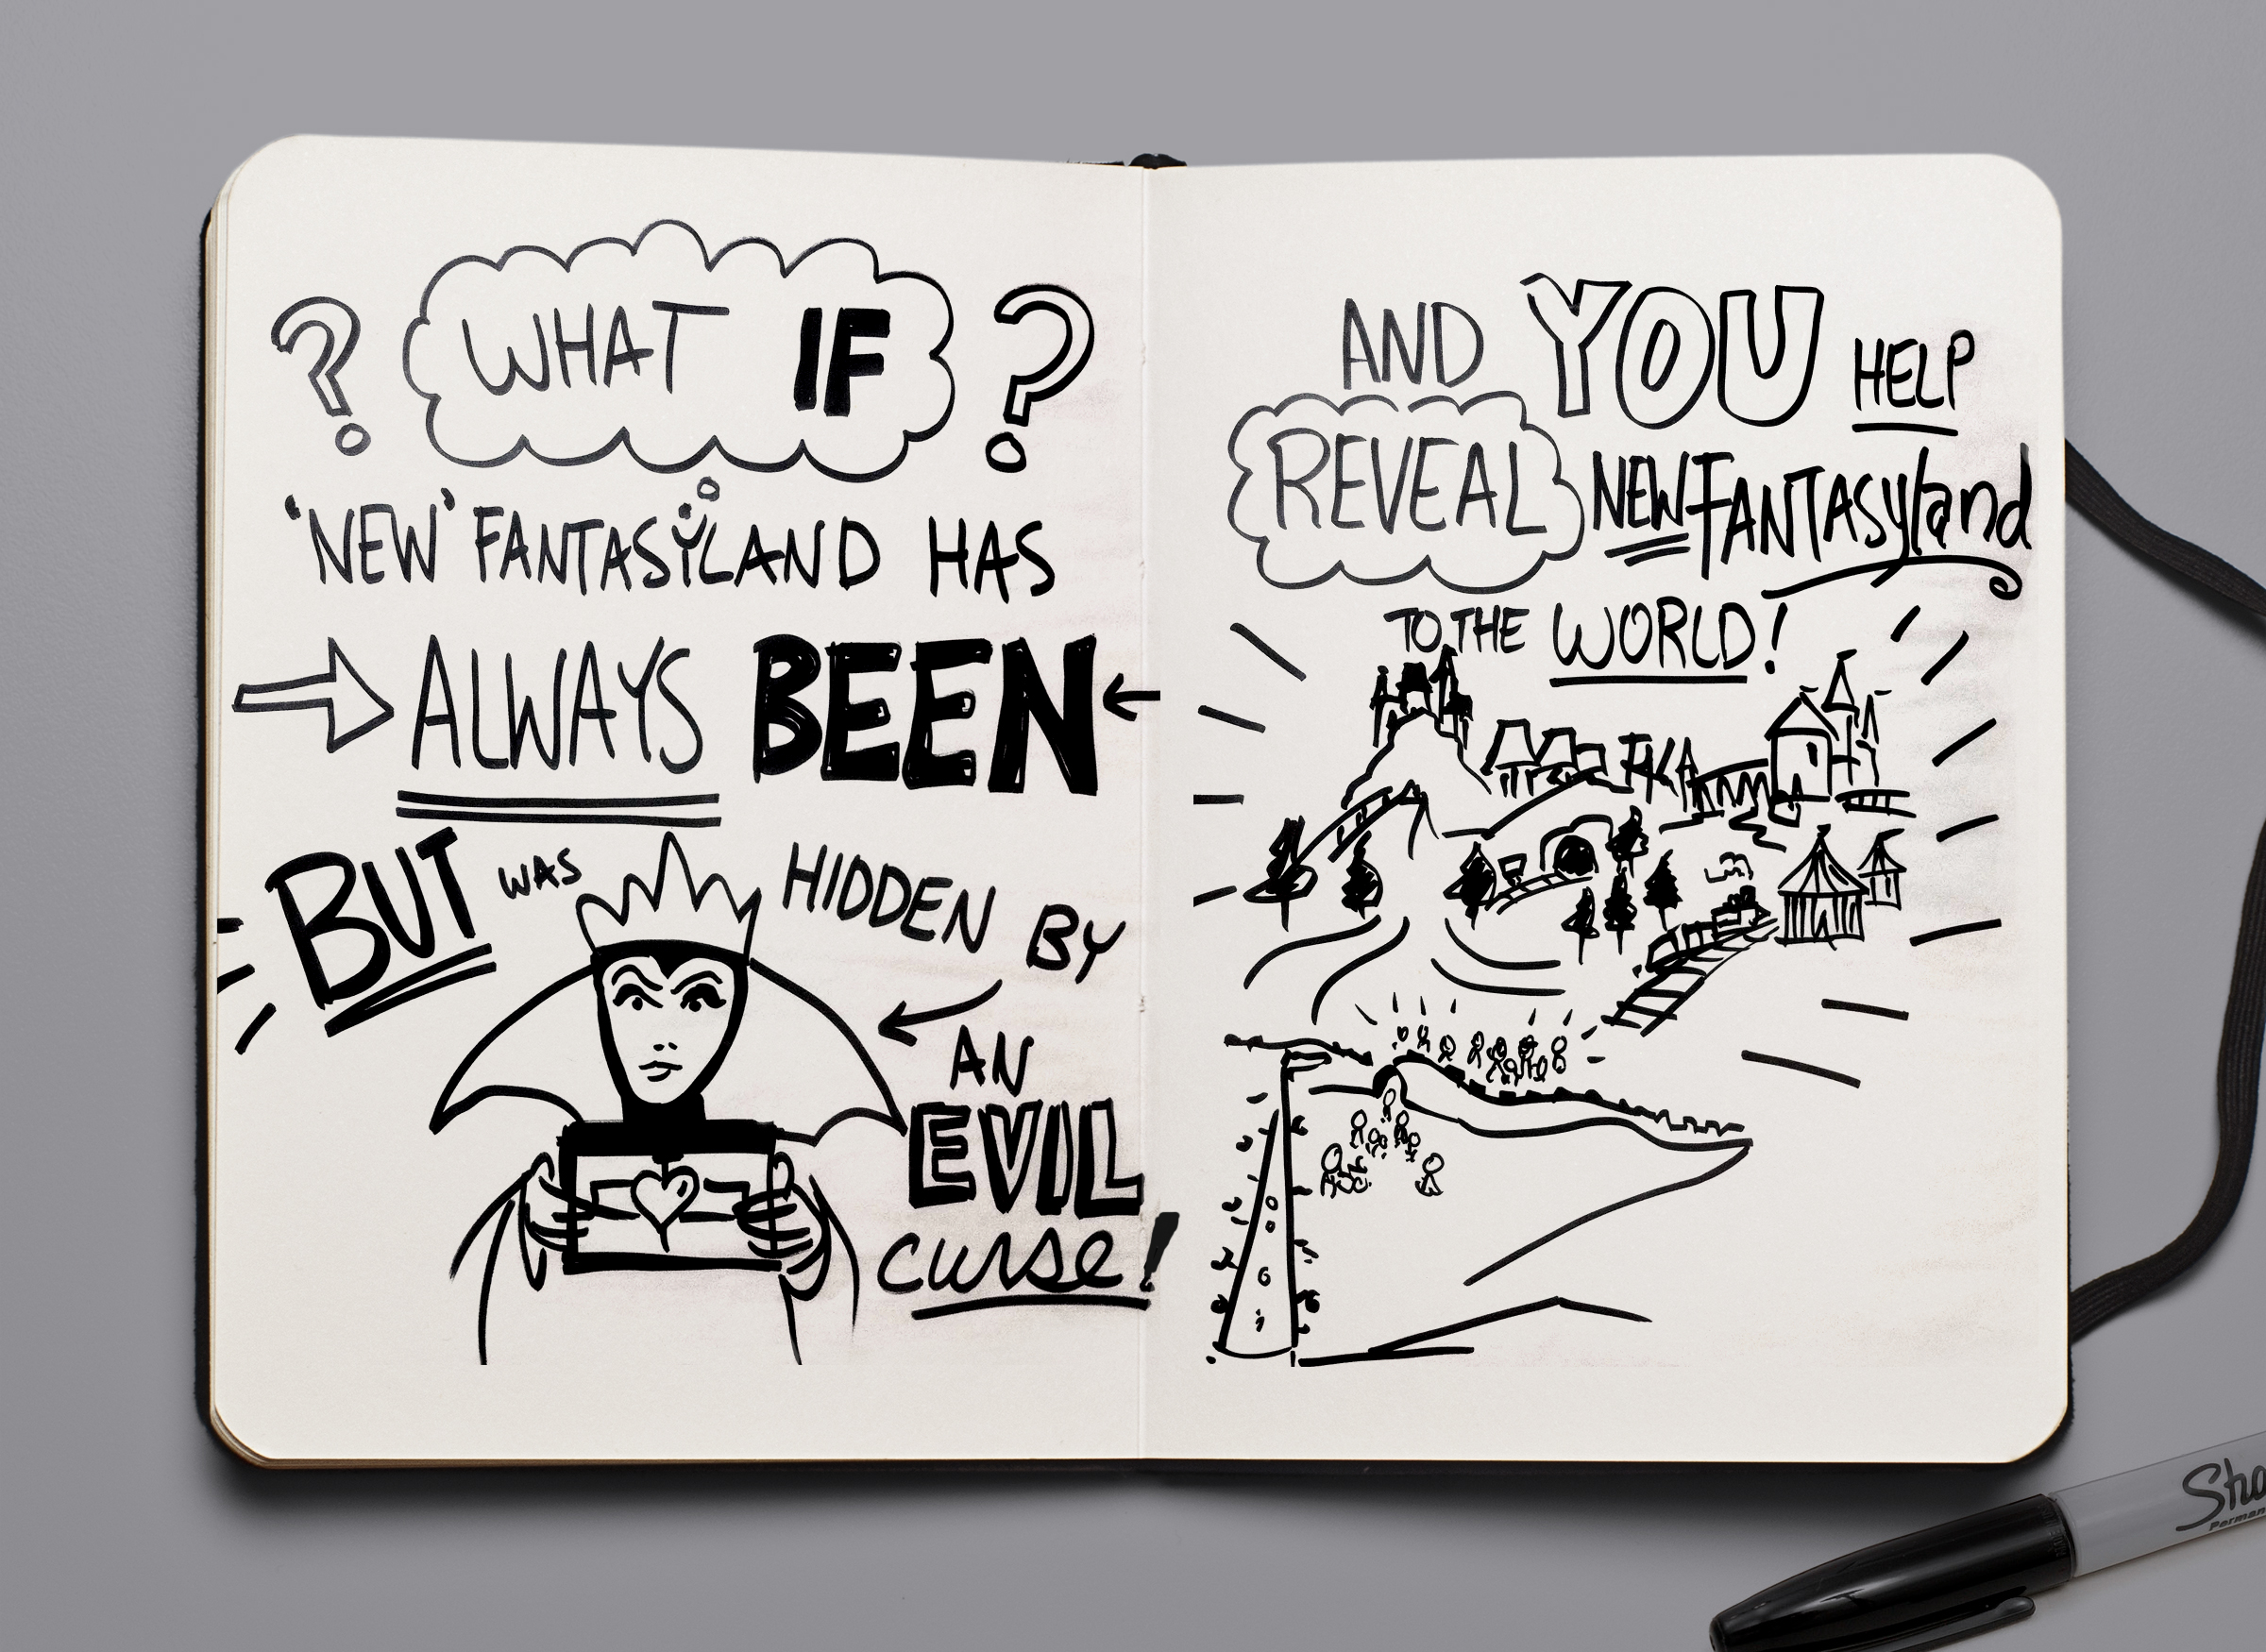 ? WHAT IF ?
'NEW' FANTASYLAND HAS
ALWAYS BEEN
BUT WAS HIDDEN BY
AN
EVIL
curse!
AND YOU HELP
REVEAL NEW FANTASYland
TO THE WORLD!